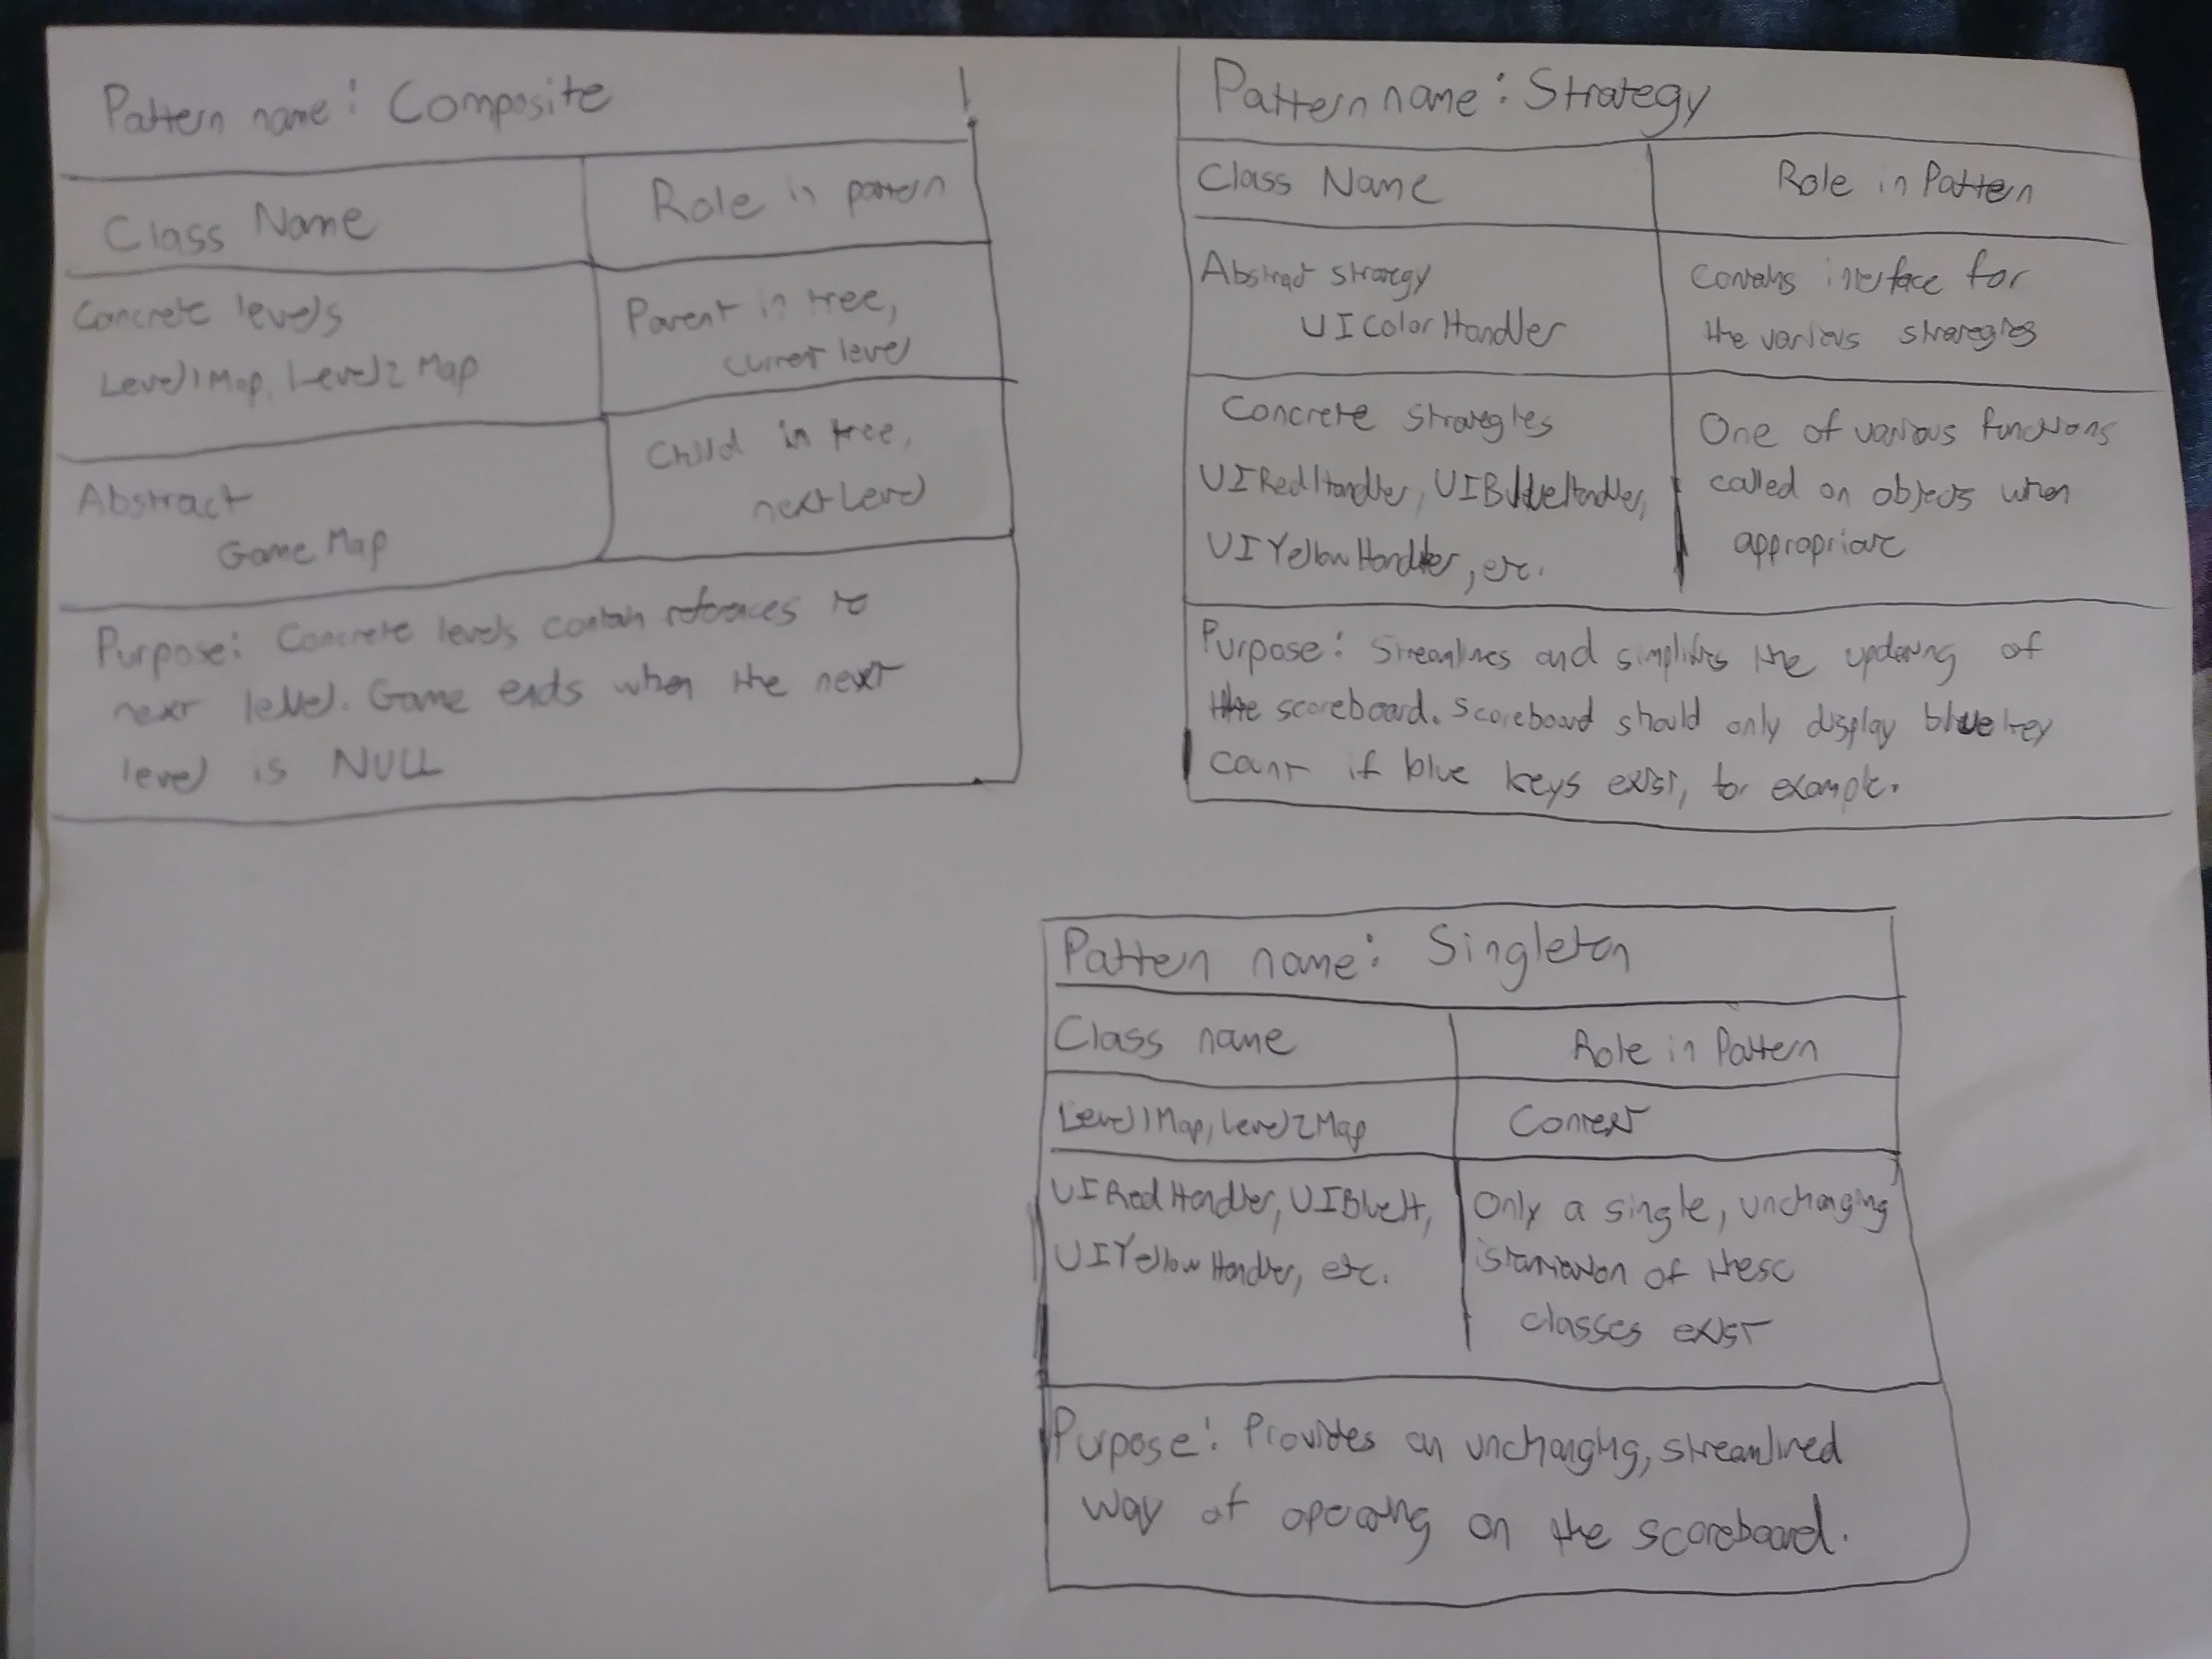 Pattern name: Composite
Class Name
Role in pattern
Concrete levels
Level1Map, Level2Map
Parent in tree,
current level
Abstract
GameMap
Child in tree,
next Level
Purpose: Concrete levels contain references to
next level. Game ends when the next
level is NULL
Pattern name: Strategy
Class Name
Role in Pattern
Abstract strategy
UIColorHandler
Contains interface for
the various strategies
Concrete strategies
UIRedHandler, UIBlueHandler,
UIYellowHandler, etc.
One of various functions
called on objects when
appropriate
Purpose: Streamlines and simplifies the updating of
the scoreboard. Scoreboard should only display blue key
count if blue keys exist, for example.
Pattern name: Singleton
Class name
Role in Pattern
Level1Map, Level2Map
Context
UIRedHandler, UIBlueH,
UIYellowHandler, etc.
Only a single, unchanging
of these
classes exist
Purpose: Provides an unchanging, streamlined
way of operating on the scoreboard.